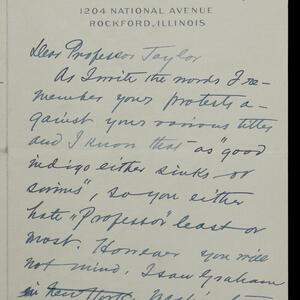 1204 NATIONAL AVENUE
ROCKFORD, ILLINOIS
Dear Professor Taylor
As I write the words I re-
member your protests a-
gainst your various titles
and I know that as "good
indigo either sinks or
swims", so you either
hate "Professor" least or
most. However you will
not mind. I saw Graham
in New York